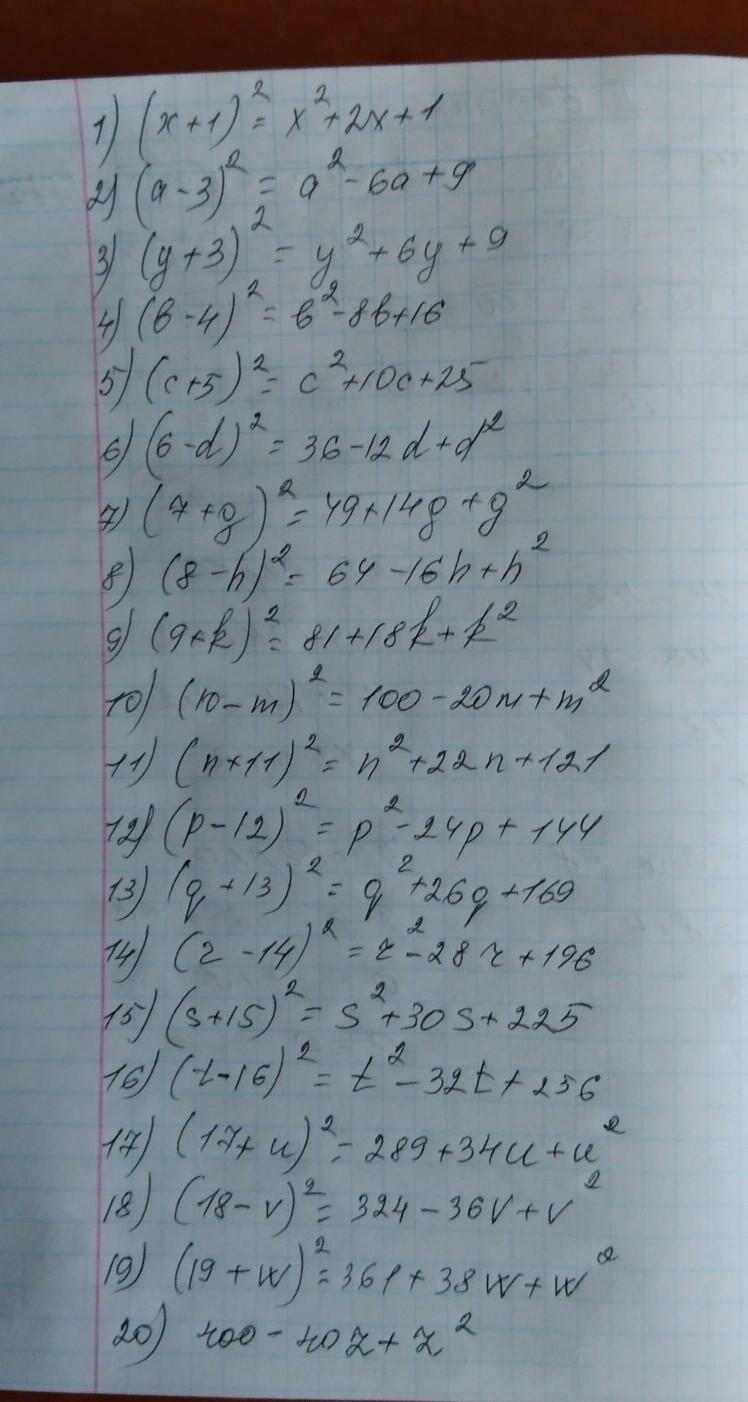 1) (x+1)² = x²+2x+1
2) (a-3)² = a²-6a+9
3) (y+3)² = y²+6y+9
4) (в-4)² = в²-8в+16
5) (c+5)² = c²+10c+25
6) (6-d)² = 36-12d+d²
7) (7+g)² = 49+14g+g²
8) (8-h)² = 64-16h+h²
9) (9+k)² = 81+18k+k²
10) (10-m)² = 100-20m+m²
11) (n+11)² = n²+22n+121
12) (p-12)² = p²-24p+144
13) (q+13)² = q²+26q+169
14) (r-14)² = r²-28r+196
15) (s+15)² = s²+30s+225
16) (t-16)² = t²-32t+256
17) (17+u)² = 289+34u+u²
18) (18-v)² = 324-36v+v²
19) (19+w)² = 361+38w+w²
20) 400-40z+z²